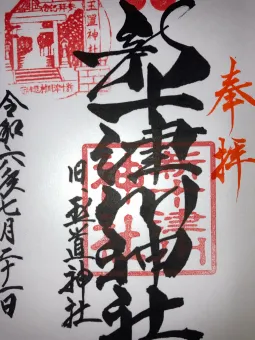 奉拝
新十津川神社
旧玉置神社
令和六年七月二十一日
玉置神社